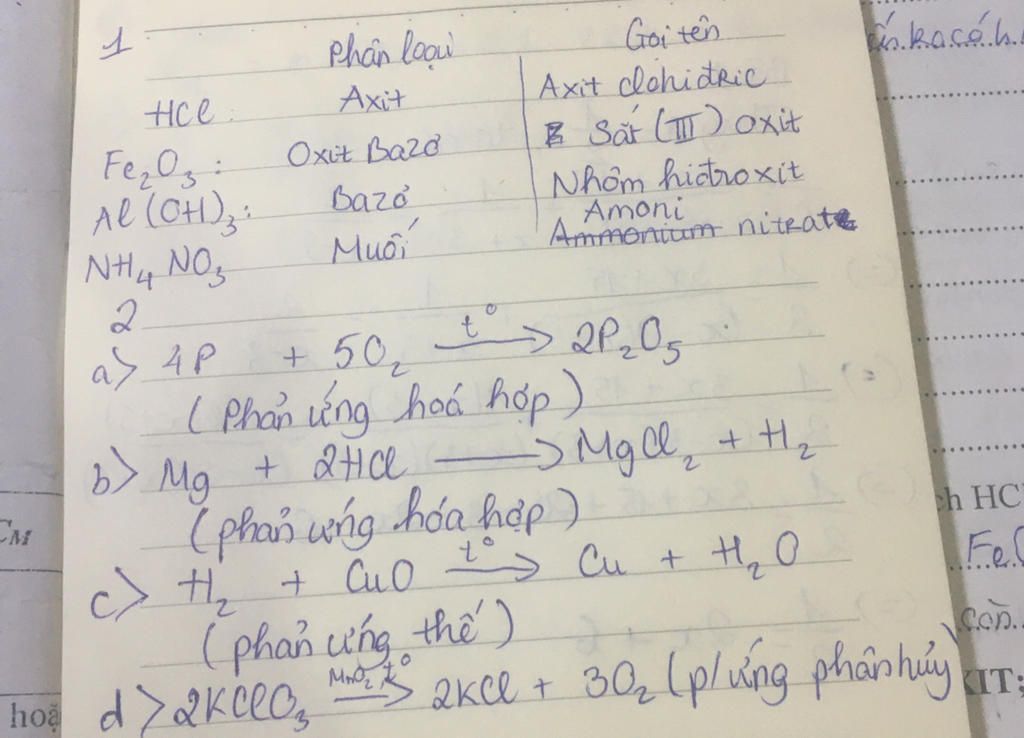 1
Phân loại Gọi tên
HCl: Axit Axit clohiđric
Fe₂O₃: Oxit Bazơ Sắt (III) oxit
Al(OH)₃: Bazơ Nhôm hiđroxit
NH₄NO₃ Muối Amoni
Ammonium nitrat
2
a> 4P + 5O₂ t° → 2P₂O₅
(Phản ứng hoá hợp)
b> Mg + 2HCl → MgCl₂ + H₂
(phản ứng hóa hợp)
c> H₂ + CuO t° → Cu + H₂O
(phản ứng thế)
d> 2KClO₃ MnO₂, t° → 2KCl + 3O₂ (p/ứng phân hủy)
ch HC
Fe
còn
XIT;
CM
hoặ